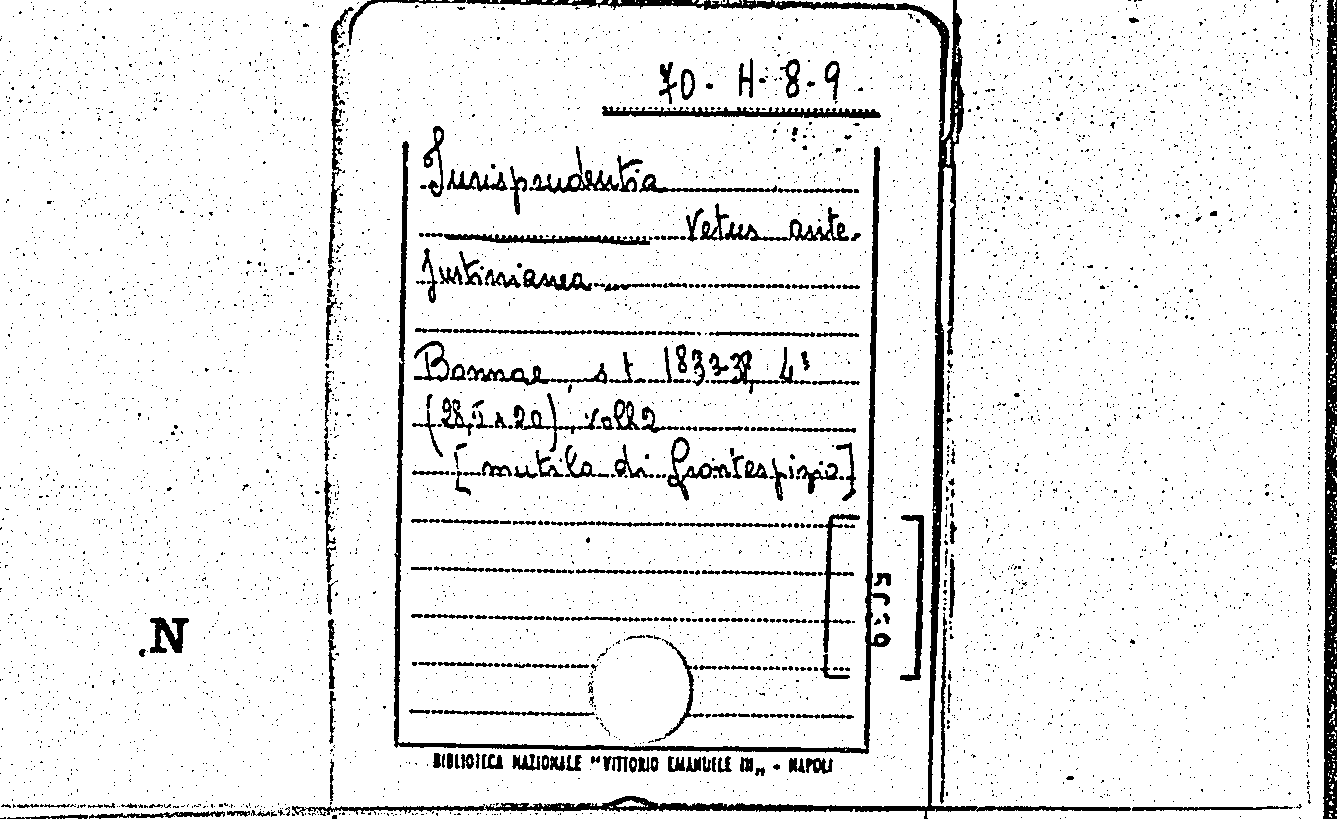 70 - H - 8 - 9
Jurisprudentia
Vetus ante-
Justinianea
Bonnae, s. t. 1833-38, 4°
(28,5 x 20), voll. 2
[mutila di frontespizio]
N
BIBLIOTECA NAZIONALE "VITTORIO EMANUELE III" - NAPOLI